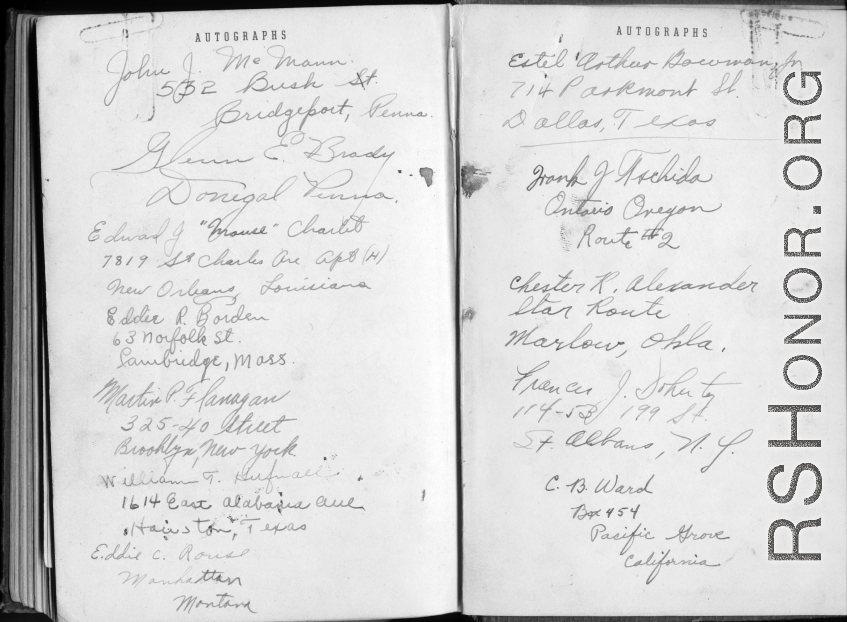 AUTOGRAPHS
John J. McMann.
532 Bush St.
Bridgeport, Penna.
Glenn E. Brady
Donegal Penna.
Edward J "Mouse" Charlet
7819 St Charles Ave Apt (H)
New Orleans, Louisiana
Eddie R. Borden
63 Norfolk St.
Cambridge, Mass.
Martin P. Flanagan
325-40 Street
Brooklyn, New York
William T.
1614 East Alabama Ave
Houston, Texas
Eddie C. Rouse
Manhattan
Montana
AUTOGRAPHS
Estel Arthur Bowman, Jr
714 Parkmont St.
Dallas, Texas
Frank J Tschida
Ontario Oregon
Route #2
Chester R. Alexander
Star Route
Marlow, Okla.
Francis J. Doherty
114-53 199 St.
St. Albans, N.Y.
C. B. Ward
Box 454
Pacific Grove
California
RSHONOR.ORG